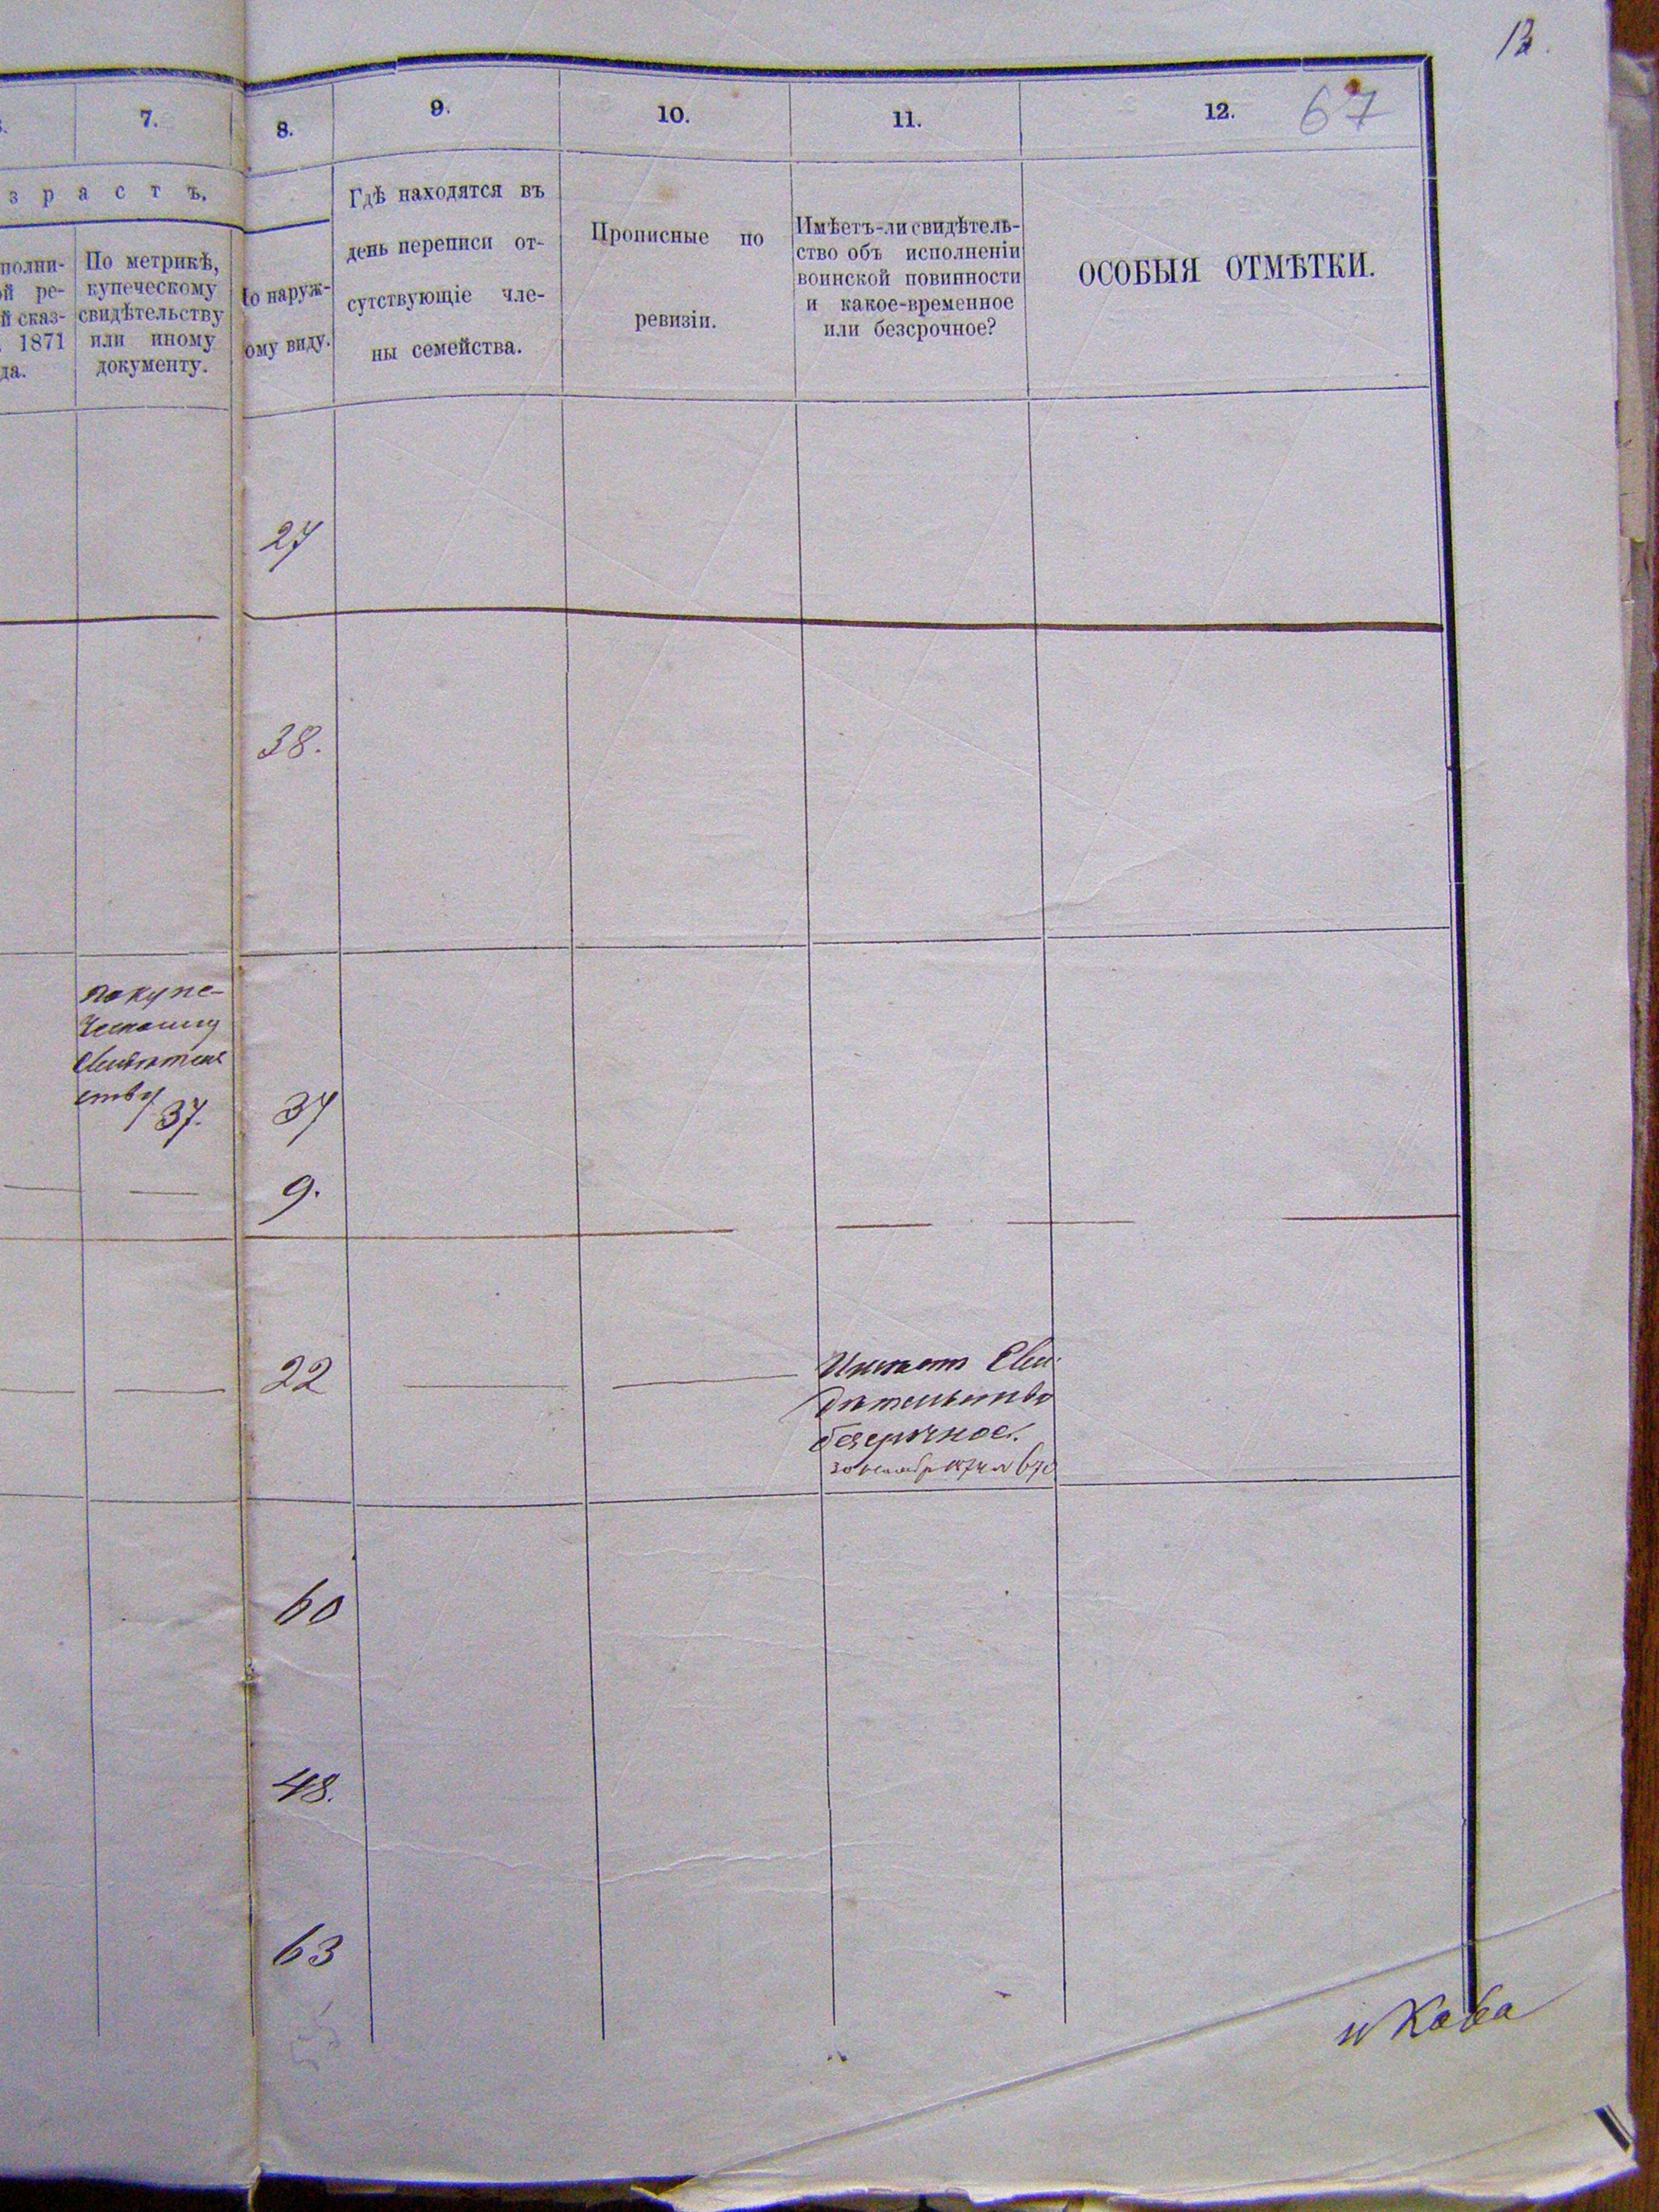 12.
7.
8.
9.
10.
11.
12.
67
зрастъ.
полни-
й ре-
й сказ-
1871
да.
По метрикѣ,
купеческому
свидѣтельству
или иному
документу.
о наруж-
ому виду.
Гдѣ находятся въ
день переписи от-
сутствующіе чле-
ны семейства.
Прописные по
ревизіи.
Имѣетъ-ли свидѣтель-
ство объ исполненіи
воинской повинности
и какое-временное
или безсрочное?
ОСОБЫЯ ОТМѢТКИ.
27
38.
по купе-
ческому
свидѣтель
ству
37.
37
9.
22
Имѣетъ Сви
дѣтельство
безсрочное.
60
48.
63